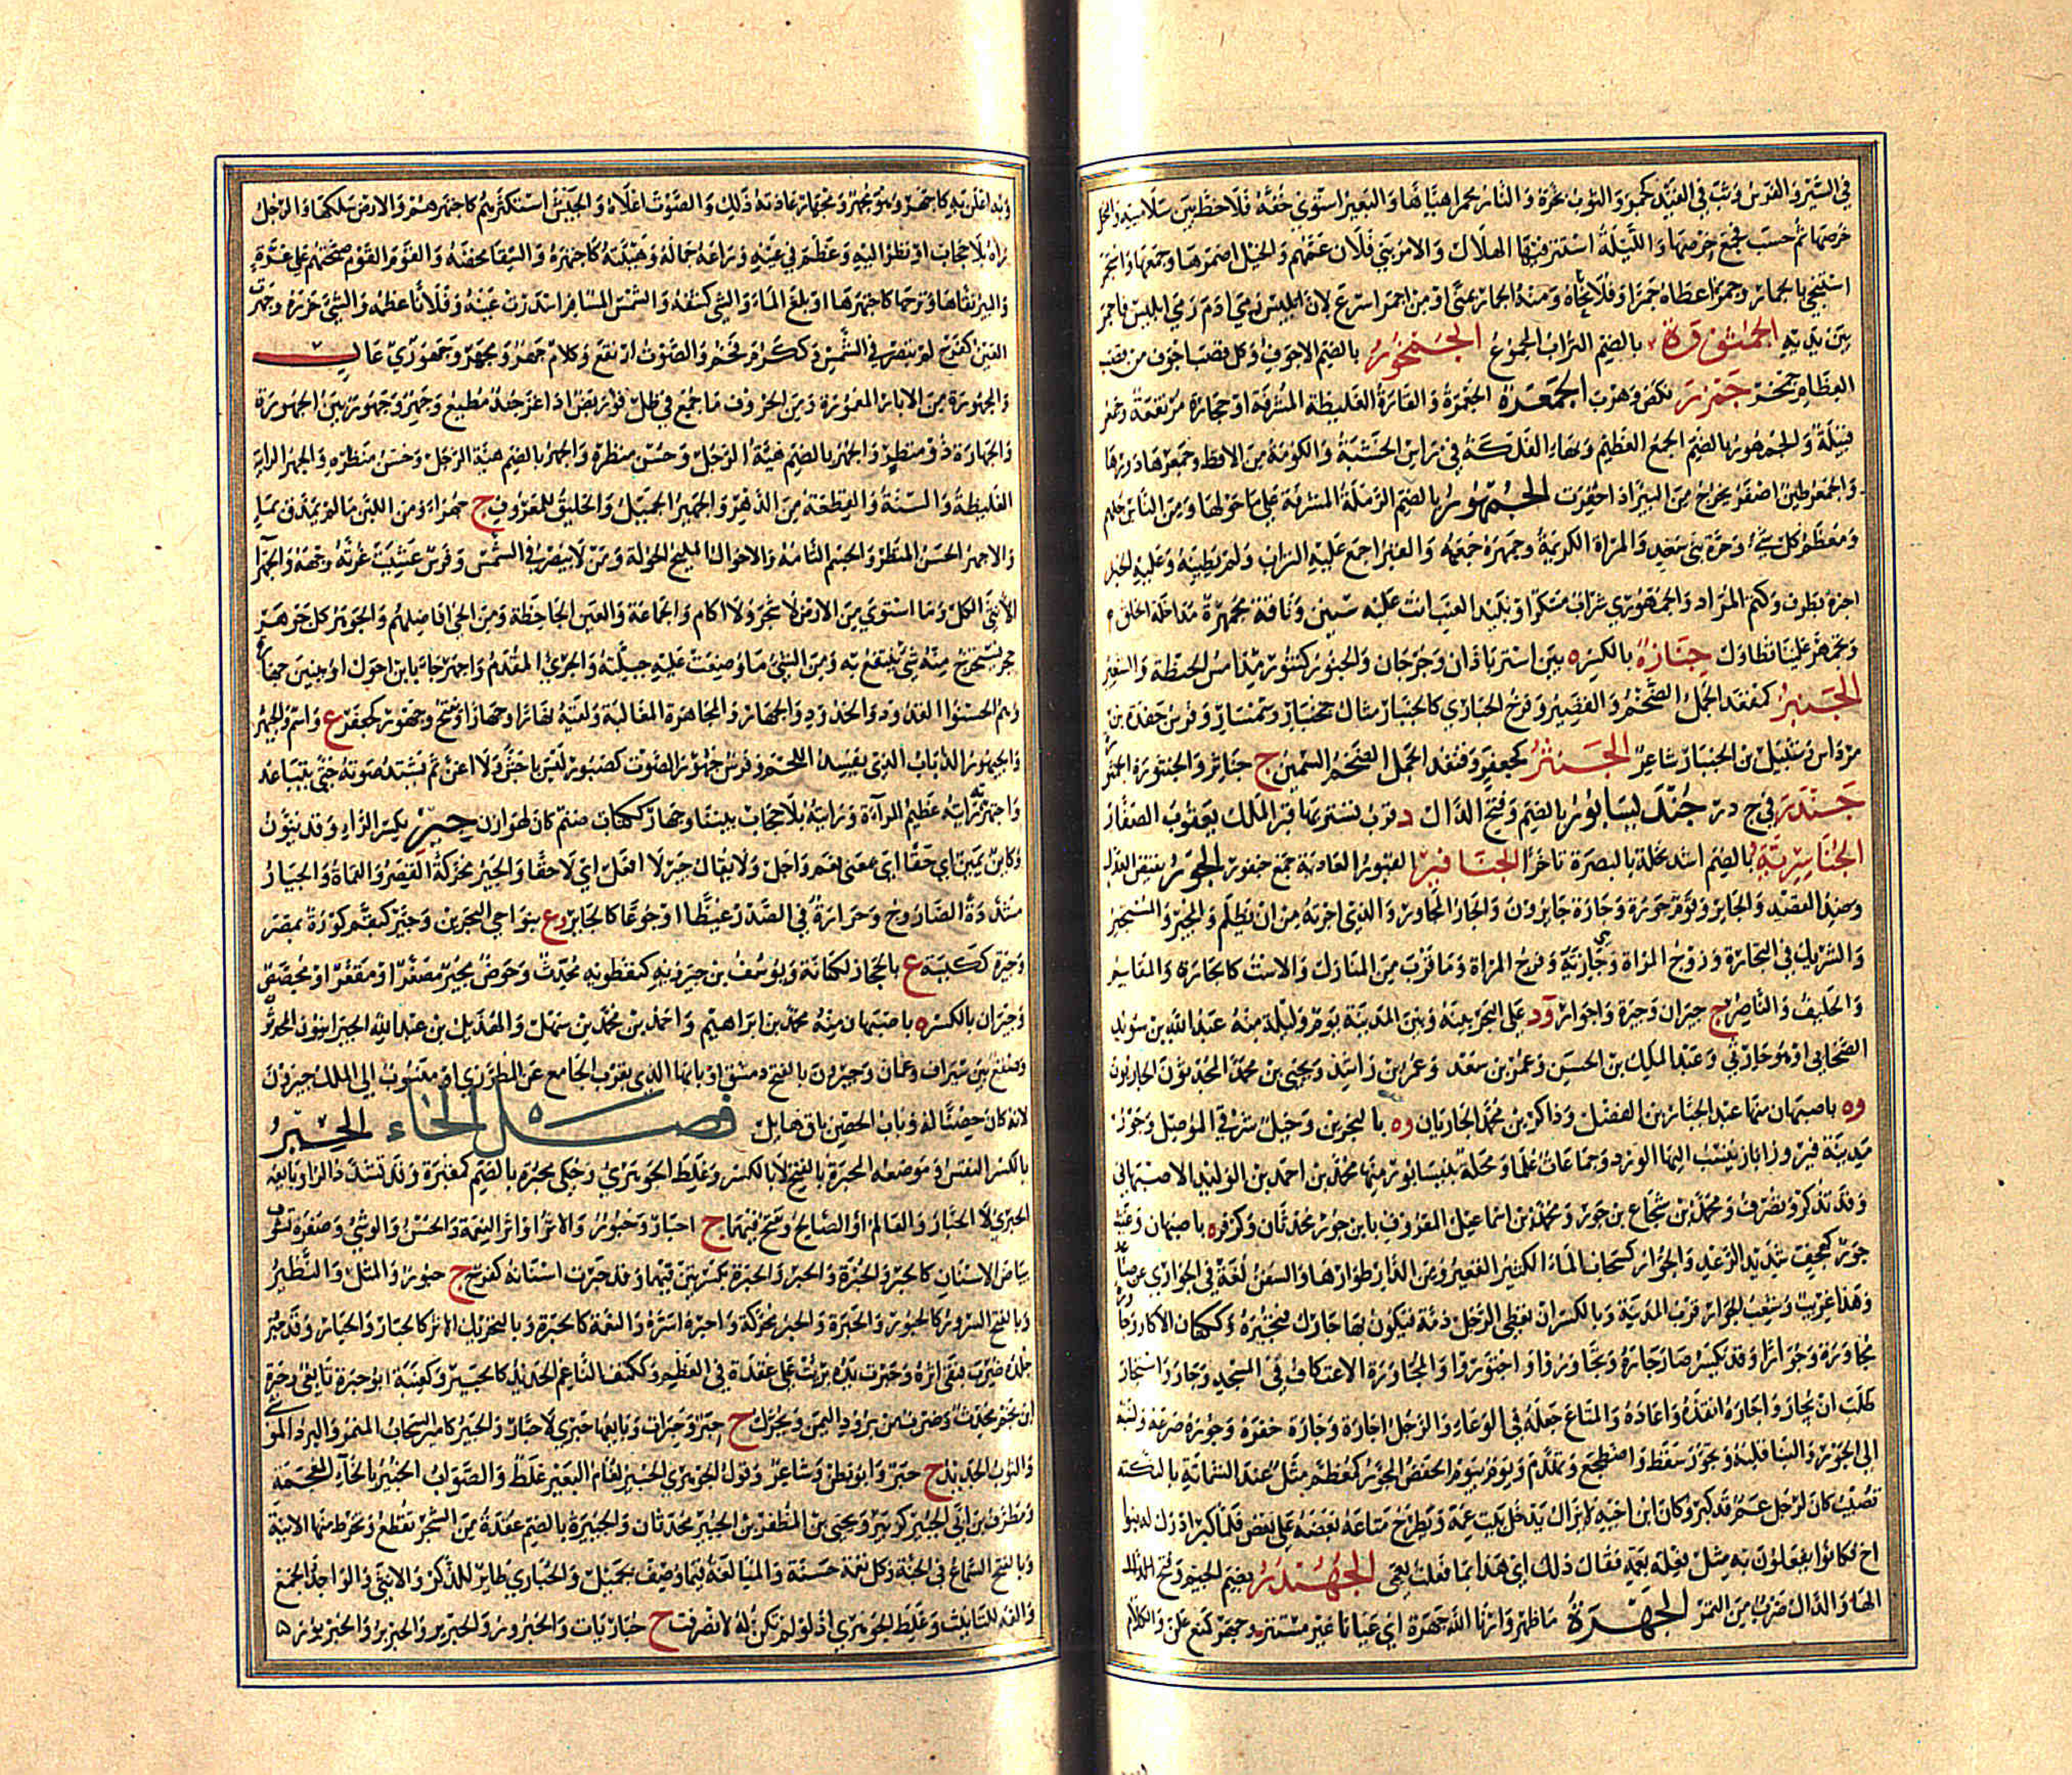 في السير والفرس وثب في القيد كجمر والثوب بخره والنار مجمرا هيأها والبعير استوى خفه فلا خط بين سلامييه والنخل
خرصها ثم حسب فجمع خرصها والليلة استتر فيها الهلال والامر بني فلان عمهم والخيل اضمرها وجمعها واستجمر
استنجى بالجمار وجمره اعطاه جمرا وفلانا نحاه ومنه الجمار بمنى او من اجمر اسرع لان ابليس رمى ادم رمى ابليس فاجمر
بين يديه الجمثورة بالضم التراب المجموع الجمخور بالضم الاجوف وكل قصب اجوف من قصب
العظام جمخر جمزر نكص وهرب الجمعرة الجمهرة والقارة الغليظة المشرفة او حجارة مرتفعة وجمعر
قبيلة والجمهور بالضم الجمع العظيم وبهاء الفلكة في راس الخشبة والكومة من الاقط وجمعرها دورها
والجمعر طين اصفر يخرج من البئر اذا احفرت الجمهور بالضم الرملة المشرفة على ما حولها ومن الناس جلهم
ومعظم كل شيء وحرة بني سعد والمراة الكريمة وجمهره جمعه والقبر اجمع عليه التراب ولم يطينه وعليه الخبر
اخبره بطرف وكتم المراد والجمهوري شراب مسكر او نبيذ العنب اتت عليه سنين وناقة مجمهرة مداخلة الخلق
وتجمهر علينا تطاول جنازة بالكسر ه بين استرباذان وجرجان والجنور كتنور مداس الحنطة والشعير
الجنبر كقنفذ الجمل الضخم والقصير وفرخ الحبارى كالجنبار مثال جحنبار وسمسار وفرس جعدة بن
مرداس وشبيل بن الجنبار شاعر الجنثر كجعفر وقنفذ الجمل الضخم السمين ج جناثر والجنثورة الجثو
جندر في ج د ر جنديسابور بالضم وفتح الدال د قرب تستر بها قبر الملك يعقوب الصفار
الجناسرية بالضم اشد نخلة بالبصرة تاخرا الجنافير القبور العادية جمع جنفور الجور نقيض العدل
وضد القصد والجائر وقوم جورة وجارة جائرون والجار المجاور والذي اجرته من ان يظلم والمجير والمستجير
والشريك في التجارة وزوج المراة وهي جارته وفرج المراة وما قرب من المنازل والاست كالجارة والمقاسم
والحليف والناصر ج جيران وجيرة واجوار ود على البحر بينه وبين المدينة يوم وليلة منه عبد الله بن سويد
الصحابي او هو حارثي وعبد الملك بن الحسن وعمر بن سعد وعمر بن راشد ويحيى بن محمد المحدثون الجاريون
وه باصبهان منها عبد الجبار بن الفضل وذاكر بن محمد الجاريان وه بالبحرين وجبل شرقي الموصل وجور
مدينة فيروزاباذ ينسب اليها الورد وجماعات علما ومحلة بنيسابور منها محمد بن احمد بن الوليد الاصبهاني
وقد تذكر وتصرف ومحمد بن شجاع بن جور ومحمد بن اسماعيل المعروف بابن جور محدثان وكزفر ه باصبهان وغيث
جور كهجف شديد الرعد والجوار كسحاب الماء الكثير القعير ومن الدار طوارها والسفن لغة في الجواري عن صاعد
وهذا غريب وشعب الجوار قرب المدينة وبالكسر ان تعطي الرجل ذمة فيكون بها جارك فتجيره وككتان الاكار وجاوره
مجاورة وجوارا وقد يكسر صار جاره وتجاوروا واجتوروا والمجاورة الاعتكاف في المسجد وجار واستجار
طلب ان يجار واجاره انقذه واعاذه والمتاع جعله في الوعاء والرجل اجارة وجارة خفره وجوره صرعه ونسبه
الى الجور والبنا قلبه وتجور سقط واضطجع وتهدم ويوم بيوم الحفض المجور كمعظم مثل عند الشماتة بالنكبة
تصيب كان لرجل عم قد كبر وكان ابن اخيه لا يزال يدخل بيت عمه ويطرح متاعه بعضه على بعض فلما كبر ادرك له بنوا
اخ فكانوا يفعلون به مثل فعله بعمه فقال ذلك اي هذا بما فعلت بعمي الجهندر بضم الجيم وفتح
الهاء والدال ضرب من التمر الجهرة ما ظهر وارنا الله جهرة اي عيانا غير مستتر وجهر كمنع علن والكلام
وبه اعلن به كاجهر وهو مجهر ومجهار عادته ذلك والصوت اعلاه والجيش استكثرهم كاجتهرهم والارض سلكها والرجل
راه بلا حجاب او نظر اليه وعظم في عينه وراعه جماله وهيئته كاجتهره والسقا مخضه والقوم القوم صبحتهم على غرة
والبير نقاها او نزحها كاجتهرها او بلغ الماء والشي كشفه والشمس المسافر اسدرت عينه وفلانا عظمه والشي حزره وجهرت
العين كفرح لم تبصر في الشمس وككرم فخم والصوت ارتفع وكلام جهر ومجهر وجهوري عال
والجهورة من الابار المعمورة ومن الحروف ما جمع في ظل قو ربض اذ غزا جند مطيع وجهير وجهور بين الجهورة
والجهارة ذو منظر والجهر بالضم هيئة الرجل وحسن منظره والجهر بالضم هيئة الرجل وحسن منظره والجهر الرابية
الغليظة والسنة والقطعة من الدهر والجهير الجميل والخليق للمعروف ج جهراء ومن اللبن ما لم يمذق بماء
والاجهر الحسن المنظر والجسم التامه والاحول المليح الحولة ومن لا يبصر في الشمس وفرس غشيت غرته وجهه والجهرا
الانثى الكل وما استوى من الارض لا شجر ولا اكام والجماعة والعين الجاحظة ومن الحي افاضلهم والجوهر كل حجر
يستخرج منه شي ينتفع به ومن الشي ما وضعت عليه جبلته والجري المقدم واجهر جاء بابن احول او ببنين
وهم الحسنوا القدود والخدود والجهار والمجاهرة المغالبة ولقيه نهارا جهارا ويفتح وجهور كجعفر ع واسم
والجيهور الذباب الذي يفسد اللحم وفرس جهور الصوت كصبور ليس باجش ولا اغن ثم يشتد صوته حتى يتباعد
واجتهرته رايته عظيم المرآة ورايته بلا حجاب بيننا وجهار ككتاب صنم كان لهوازن جير بكسر الراء وقد ينون
وكاين يمين اي حقا اي بمعنى نعم واجل ولا يقال جير لا افعل اي لا حقا والجير محركة القصر والقماة والجيار
مشددة الصاروج وحرارة في الصدر غيظا او جوعا كالجائر وع بنواحي البحرين وجير كبقم كورة بمصر
وجيرة ككيسة ع بالحجاز لكنانة ويوسف بن جيرويه كنفطويه محدث وحوض مجير مصغرا او مقعر او مجصص
وجيران بالكسر ه باصبهان منه محمد بن ابراهيم واحمد بن محمد بن سهل والهذيل بن عبد الله الجيرانيون المحدثون
وصقع بين سيراف وعمان وجيرون بالفتح دمشق او بابها الذي بقرب الجامع عن المطرزي او منسوب الى الملك جيرون
لانه كان حصنا له وباب الحصن باق هايل فصل الحاء الحبر
بالكسر النقس وموضعه المحبرة بالفتح لا بالكسر وغلط الجوهري وحكي محبرة بالضم كمقبرة وقد تشدد الراء وبائعه
الحبري لا الحبار والعالم او الصالح ويفتح فيهما ج احبار وحبور والاثر او اثر النعمة والحسن والوشي وصفرة تشوب
بياض الاسنان كالحبر والحبرة والحبر والحبرة بكسرتين فيهما وقد حبرت اسنانه كفرح ج حبور والمثل والنظير
وبالفتح السرور كالحبور والحبرة والحبر محركة واحبره اسره والنعمة كالحبرة وبالتحريك الاثر كالحبار والحبار وقد حبر
جلده ضرب فبقي اثره وحبرت يده برئت على عقدة في العظم وككتف الناعم الجديد كالحبير وكعنبة ابو حبرة تابعي وحبرة
ابن نجم محدث وضرب من برود اليمن ويحرك ج حبر وحبرات وبايعها حبري لا حبار والحبير كامير السحاب المنمر والبرد الموشى
والثوب الجديد ج حبر وابو بطن وشاعر وقول الجوهري الحبير لغام البعير غلط والصواب الخبير بالخاء المعجمة
ومطرف بن ابي الحبير كزبير ويحيى بن المظفر بن الحبير محدثان والحبرة بالضم عقدة من الشجر تقطع ويخرط منها الانية
وبالفتح السماع في الجنة وكل نغمة حسنة والمبالغة فيما وصف بجميل والحبارى طائر للذكر والانثى والواحد والجمع
والفه للتانيث وغلط الجوهري اذ لو لم تكن له لانصرفت ج حباريات والحبرور والحبرير والحبربر والحبربور